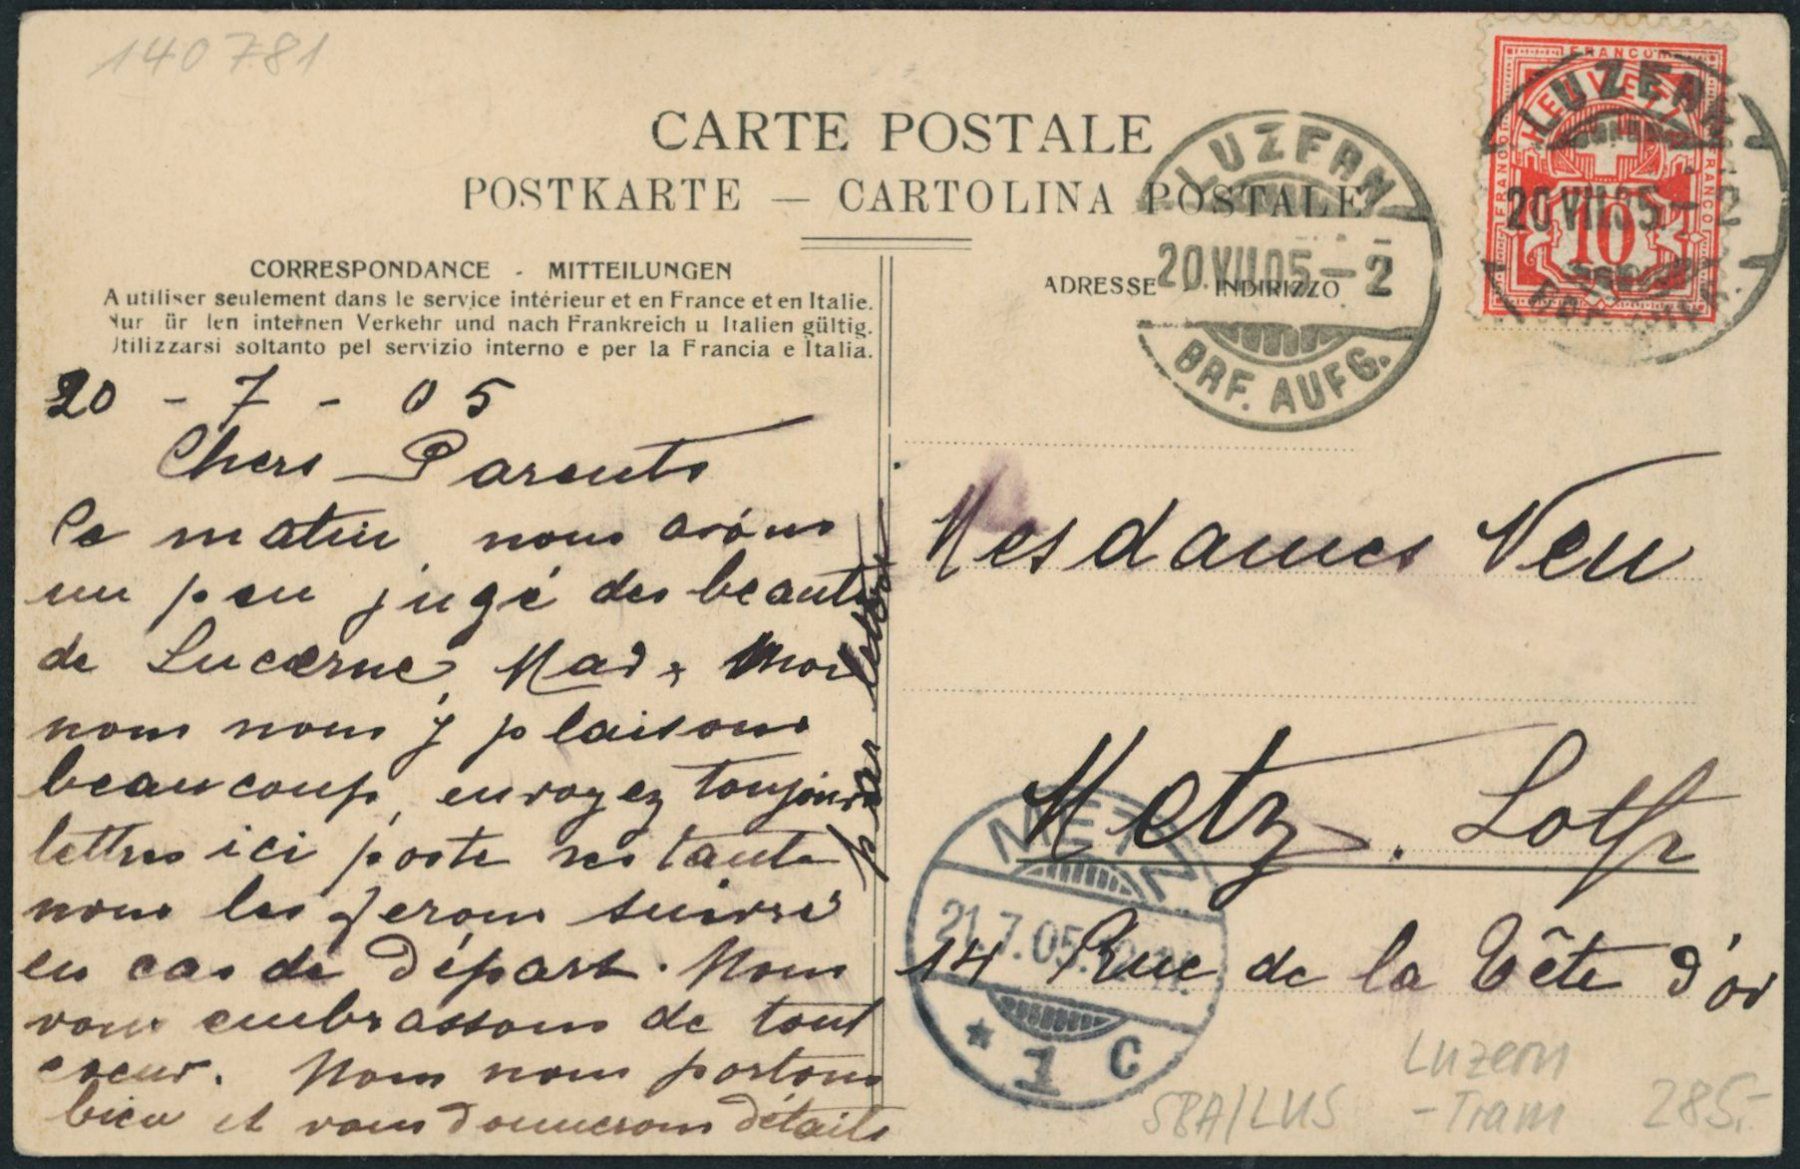 140781
CARTE POSTALE
POSTKARTE — CARTOLINA POSTALE
CORRESPONDANCE - MITTEILUNGEN
A utiliser seulement dans le service intérieur et en France et en Italie.
Nur ür den internen Verkehr und nach Frankreich u Italien gültig.
Utilizzarsi soltanto pel servizio interno e per la Francia e Italia.
ADRESSE INDIRIZZO
LUZERN
20.VII.05.–2
BRF. AUFG.
FRANCO
HELVETIA
FRANCO
FRANCO
10
LUZERN
20.VII.05.–2
20 - 7 - 05
Chers Parents
Ce matin nous avons
un peu jugé des beautés
de Lucerne, Mad &
nous nous y plaisons
beaucoup, envoyez toujours
lettres ici poste restante
nous les ferons suivre
en cas de départ. Nous
vous embrassons de tout
coeur. Nous nous portons
bien et vous donnerons détails
par lettre
Mesdames Neu
Metz. Lothr
14 Rue de la Tête d'or
METZ
21.7.05.
* 1 C
SBA/LUS
Luzern
-Tram
285.-